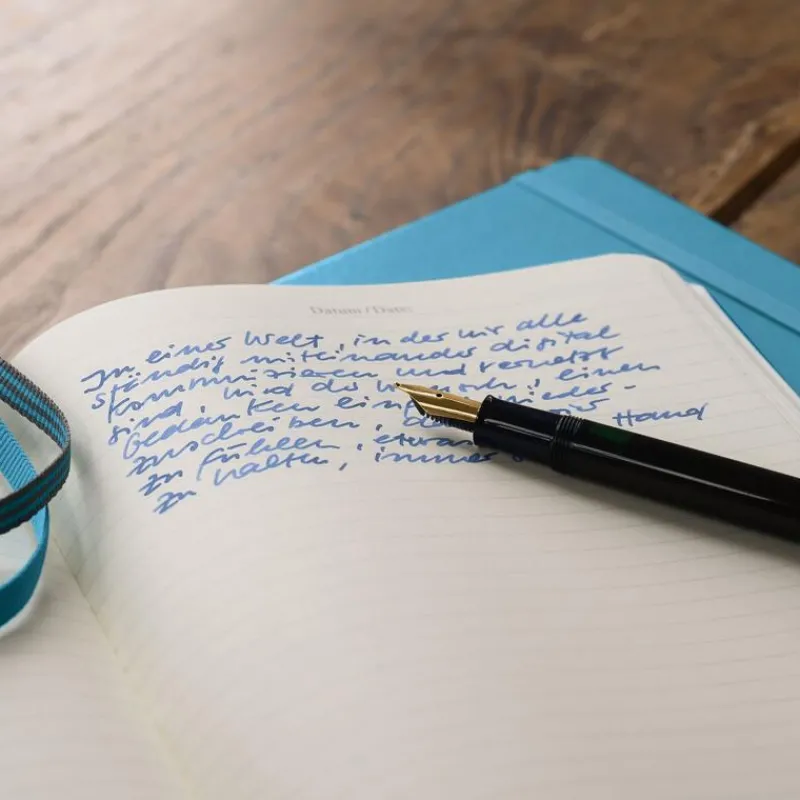 Datum / Date:
In einer Welt, in der wir alle
ständig miteinander digital
kommunizieren und vernetzt
sind wird der Wunsch, einen
Gedanken nieder-
zuschreiben,
zu fühlen, etwas Hand
zu halten, immer